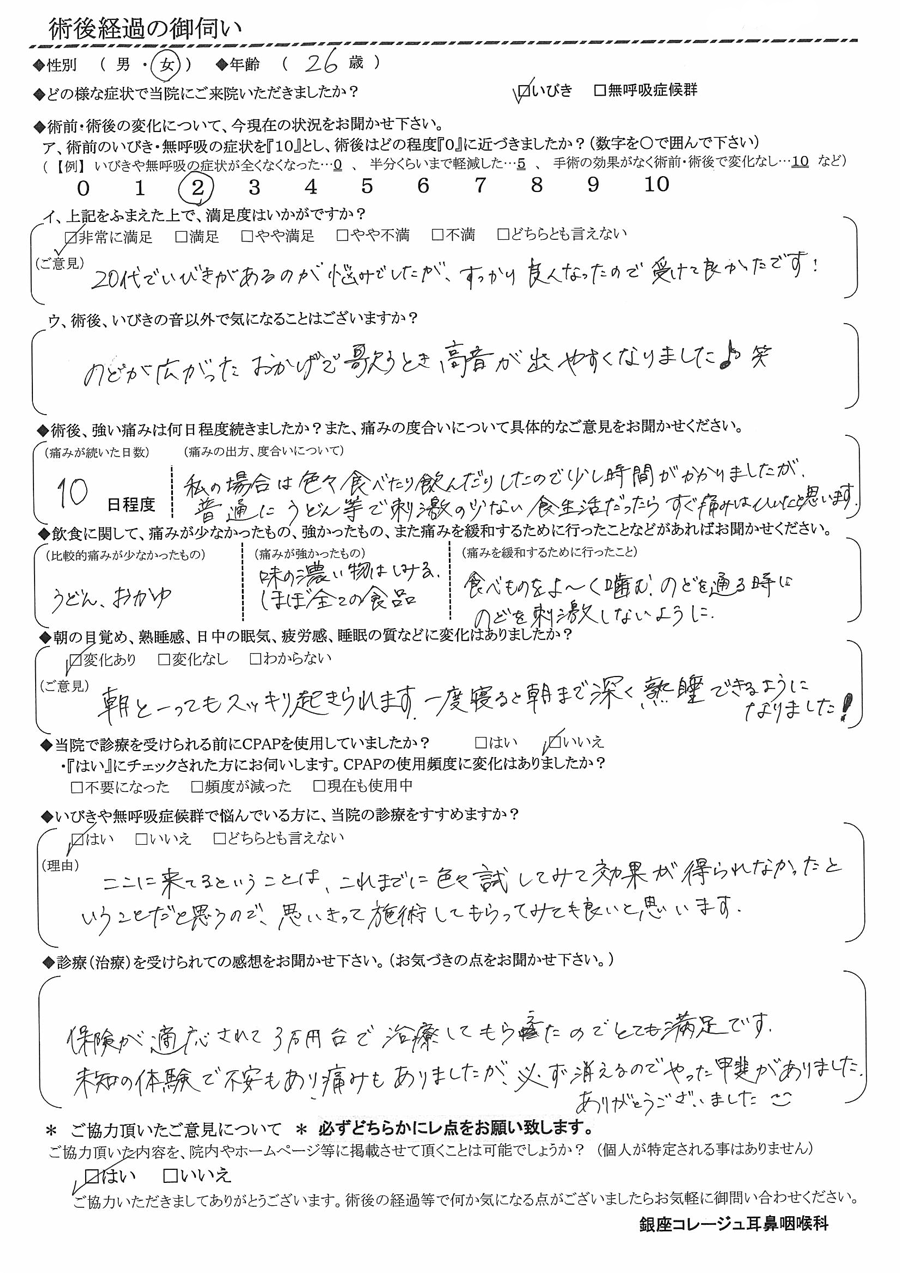 術後経過の御伺い
◆性別 ( 男 ・ 女 ) ◆年齢 ( 26 歳 )
◆どの様な症状で当院にご来院いただきましたか? ☑いびき □無呼吸症候群
◆術前・術後の変化について、今現在の状況をお聞かせ下さい。
ア、術前のいびき・無呼吸の症状を『10』とし、術後はどの程度『0』に近づきましたか?(数字を○で囲んで下さい)
(【例】いびきや無呼吸の症状が全くなくなった…0 、 半分くらいまで軽減した…5 、 手術の効果がなく術前・術後で変化なし…10 など)
0 1 2 3 4 5 6 7 8 9 10
イ、上記をふまえた上で、満足度はいかがですか?
☑非常に満足 □満足 □やや満足 □やや不満 □不満 □どちらとも言えない
(ご意見) 20代でいびきがあるのが悩みでしたが、すっかり良くなったので受けて良かったです!
ウ、術後、いびきの音以外で気になることはございますか?
のどが広がったおかげで歌うとき高音が出やすくなりました♪ 笑
◆術後、強い痛みは何日程度続きましたか?また、痛みの度合いについて具体的なご意見をお聞かせください。
(痛みが続いた日数) (痛みの出方、度合いについて)
10 日程度 私の場合は色々食べたり飲んだりしたので少し時間がかかりましたが、
普通にうどん等で刺激の少ない食生活だったらすぐ痛みはくいたと思います.
◆飲食に関して、痛みが少なかったもの、強かったもの、また痛みを緩和するために行ったことなどがあればお聞かせください。
(比較的痛みが少なかったもの) (痛みが強かったもの) (痛みを緩和するために行ったこと)
うどん、おかゆ 味の濃い物はしみる、 食べものをよ〜く噛む、のどを通る時に
ほぼ全ての食品 のどを刺激しないように.
◆朝の目覚め、熟睡感、日中の眠気、疲労感、睡眠の質などに変化はありましたか?
☑変化あり □変化なし □わからない
(ご意見) 朝とーってもスッキリ起きられます.一度寝ると朝まで深く熟睡できるように
なりました!
◆当院で診療を受けられる前にCPAPを使用していましたか? □はい ☑いいえ
・『はい』にチェックされた方にお伺いします。CPAPの使用頻度に変化はありましたか?
□不要になった □頻度が減った □現在も使用中
◆いびきや無呼吸症候群で悩んでいる方に、当院の診療をすすめますか?
☑はい □いいえ □どちらとも言えない
(理由) ここに来てるということは、これまでに色々試してみて効果が得られなかったと
いうことだと思うので、思いきって施術してもらってみても良いと思います.
◆診療(治療)を受けられての感想をお聞かせ下さい。(お気づきの点をお聞かせ下さい。)
保険が適応されて3万円台で治療してもらえたのでとても満足です.
未知の体験で不安もあり、痛みもありましたが、必ず消えるのでやった甲斐がありました.
ありがとうございました
* ご協力頂いたご意見について * 必ずどちらかにレ点をお願い致します。
ご協力頂いた内容を、院内やホームページ等に掲載させて頂くことは可能でしょうか? (個人が特定される事はありません)
☑はい □いいえ
ご協力いただきましてありがとうございます。術後の経過等で何か気になる点がございましたらお気軽に御問い合わせください。
銀座コレージュ耳鼻咽喉科